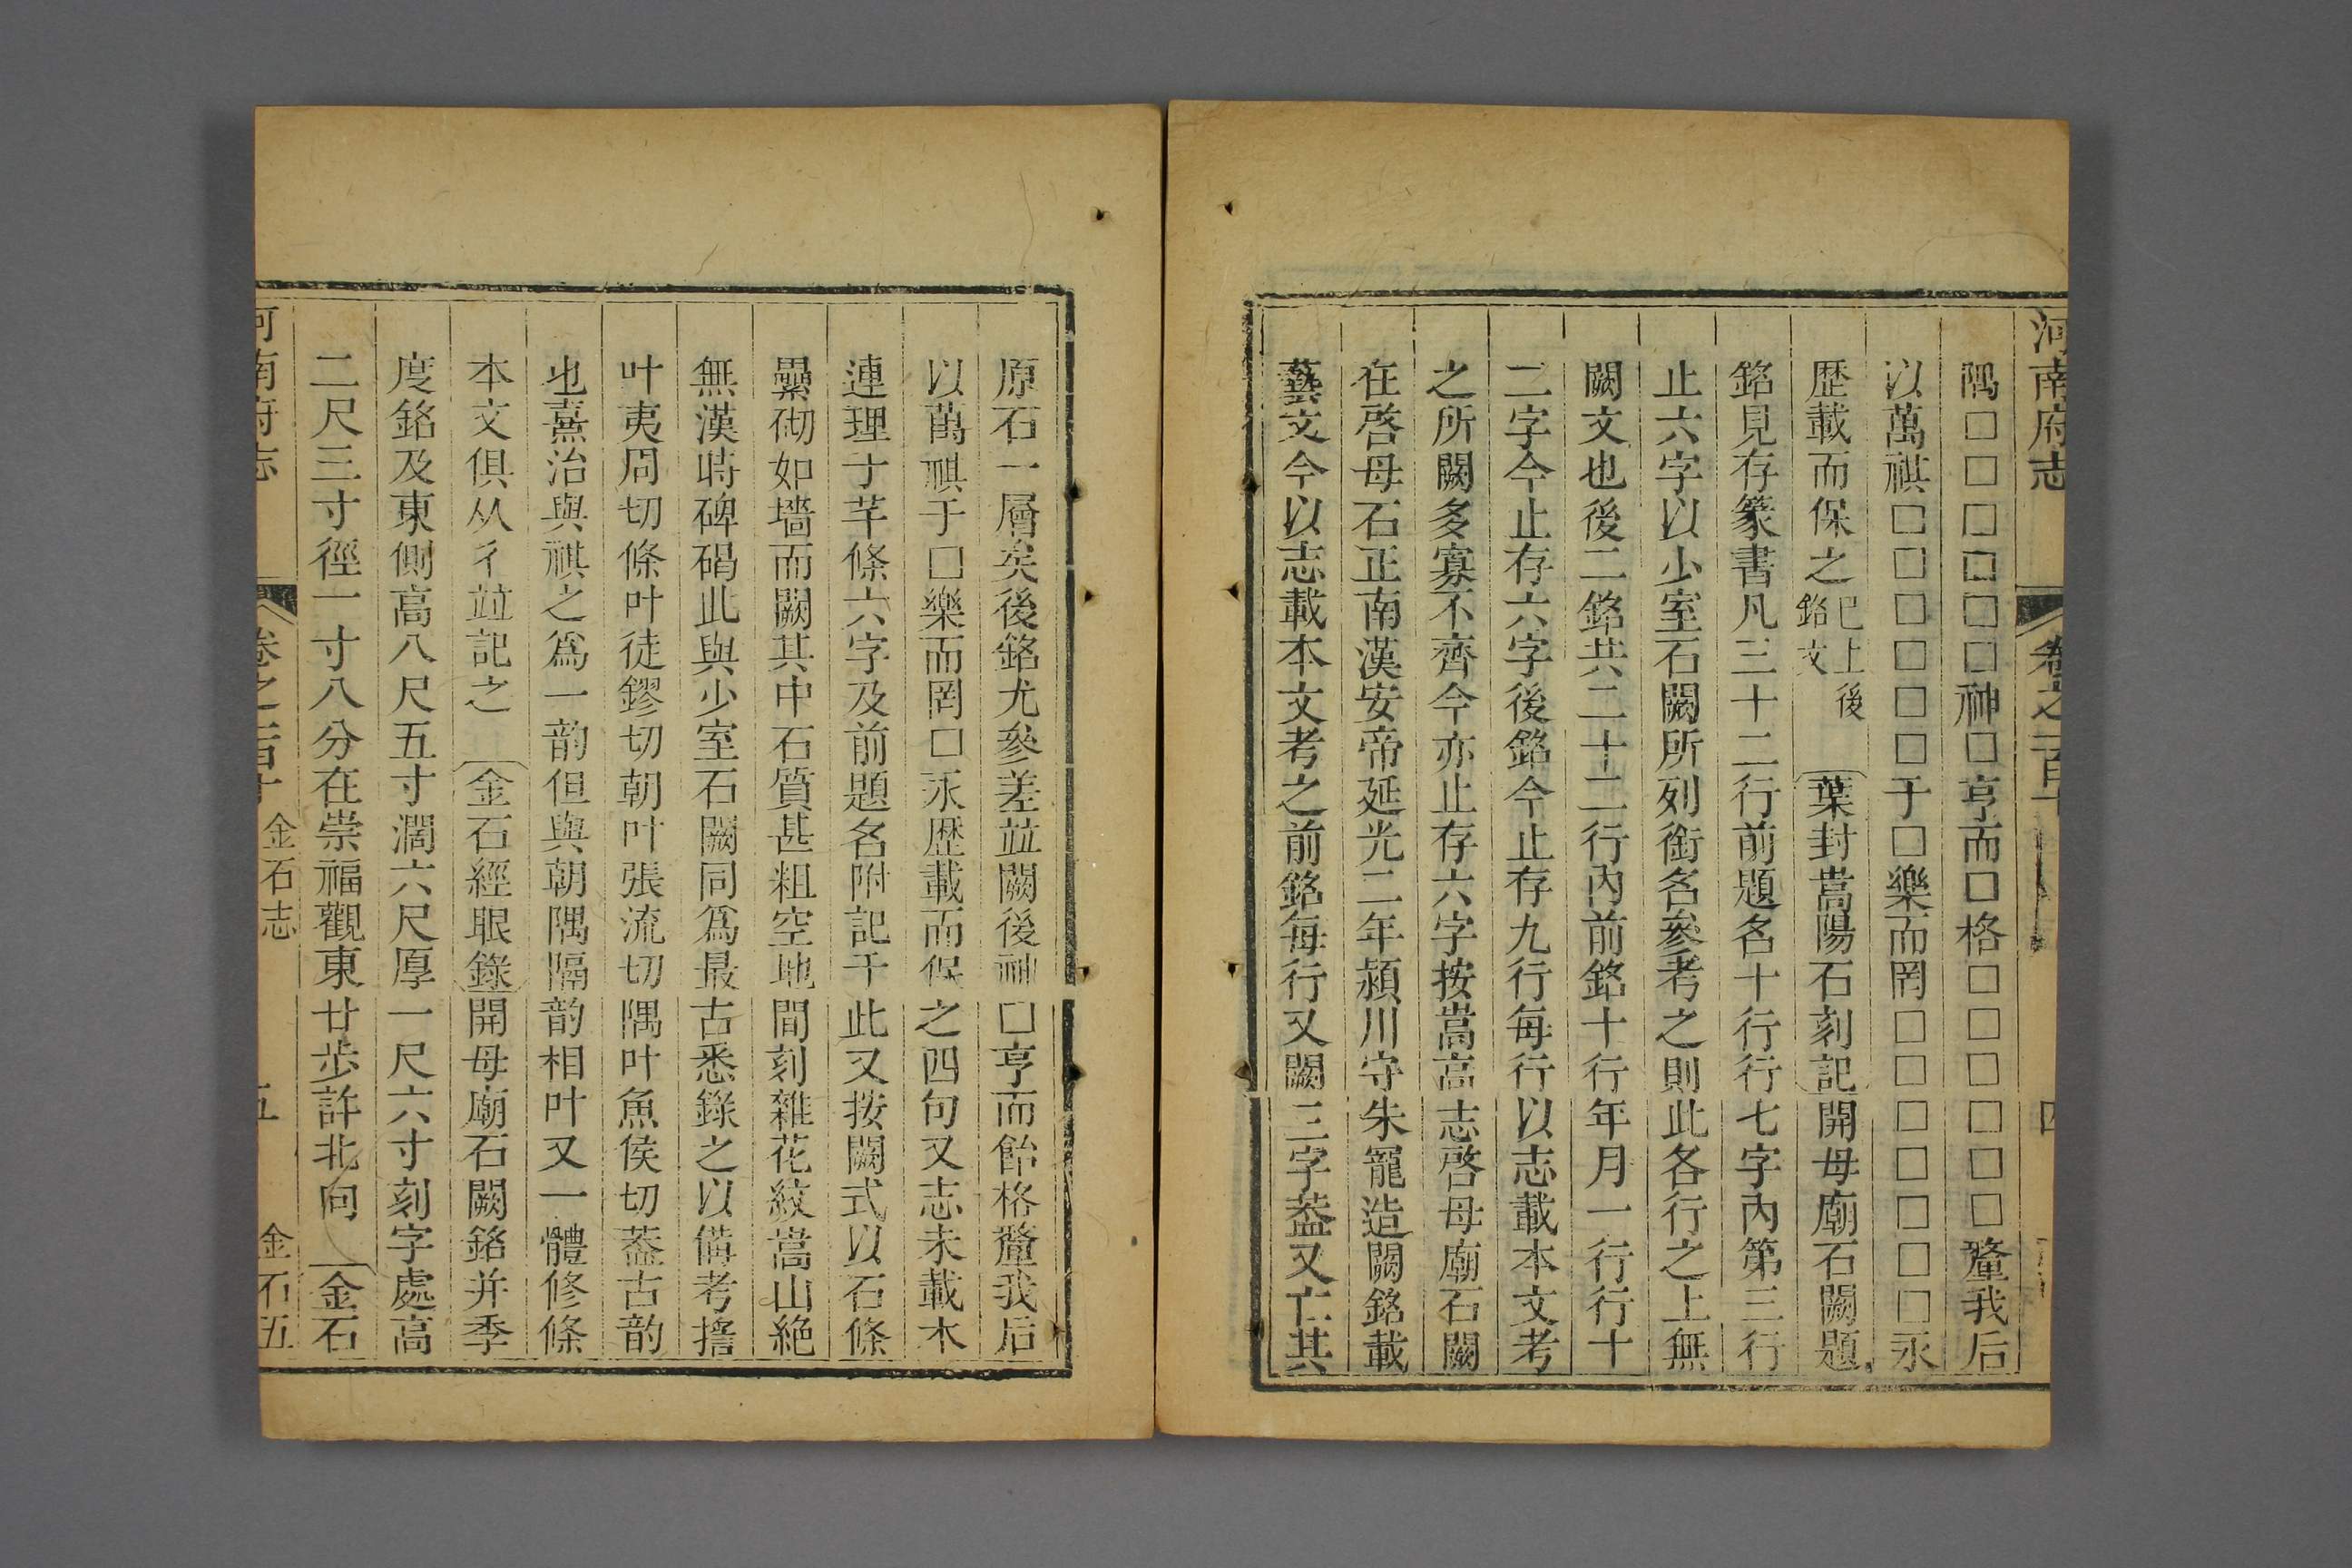 河南府志 卷之一百十 四
隅□□□□□□神□亨而□格□□□□□□釐我后
以萬祺□□□□□□于□樂而罔□□□□□□□永
歷載而保之已上後銘文 葉封嵩陽石刻記開母廟石闕題
銘見存篆書凡三十二行前題名十行行七字內第三行
止六字以少室石闕所列銜名參考之則此各行之上無
闕文也後二銘共二十二行內前銘十行年月一行行十
二字今止存六字後銘今止存九行每行以志載本文考
之所闕多寡不齊今亦止存六字按嵩高志啓母廟石闕
在啓母石正南漢安帝延光二年潁川守朱寵造闕銘載
藝文今以志載本文考之前銘每行又闕三字葢又亡其
原石一層矣後銘尤參差竝闕後神□亨而飴格釐我后
以萬祺于□樂而罔□永歷載而保之四句又志未載木
連理于芊條六字及前題名附記于此又按闕式以石條
纍砌如墻而闕其中石質甚粗空地間刻雜花紋嵩山絕
無漢時碑碣此與少室石闕同爲最古悉錄之以備考擔
叶夷周切條叶徒鏐切朝叶張流切隅叶魚侯切葢古韵
也熹治與祺之爲一韵但與朝隅隔韵相叶又一體修條
本文俱从彳竝記之 金石經眼錄開母廟石闕銘并季
度銘及東側高八尺五寸濶六尺厚一尺六寸刻字處高
二尺三寸徑一寸八分在崇福觀東廿步許北向 金石
河南府志 卷之一百十 金石志 五 金石五